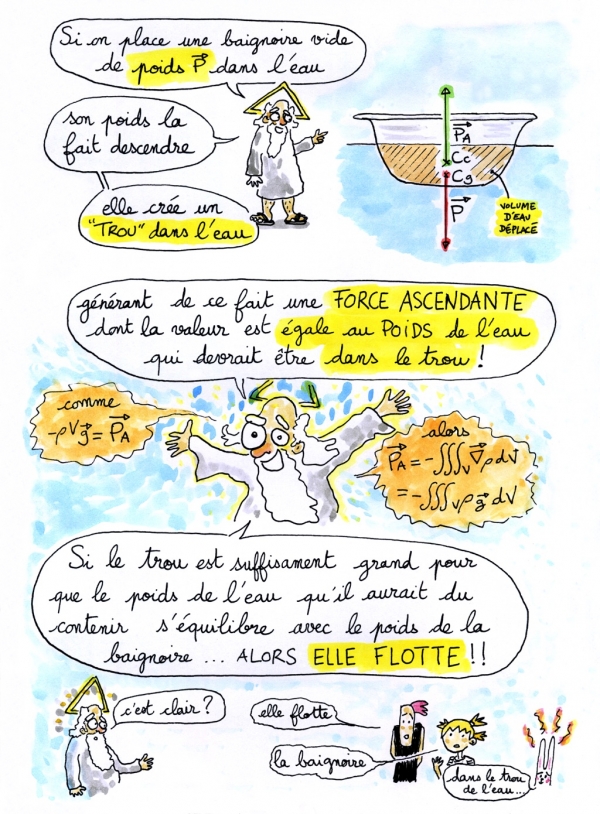 Si on place une baignoire vide
de poids P⃗ dans l'eau
son poids la
fait descendre
elle crée un
"TROU" dans l'eau
P⃗A
Cc
Cg
P⃗
VOLUME
D'EAU
DÉPLACÉ
générant de ce fait une FORCE ASCENDANTE
dont la valeur est égale au POIDS de l'eau
qui devrait être dans le trou !
comme
-ρVg⃗ = P⃗A
alors
P⃗A = -∭V ∇⃗ρ dV
= -∭V ρg⃗ dV
Si le trou est suffisament grand pour
que le poids de l'eau qu'il aurait du
contenir s'équilibre avec le poids de la
baignoire ... ALORS ELLE FLOTTE !!
c'est clair ?
elle flotte
la baignoire
dans le trou
de l'eau...